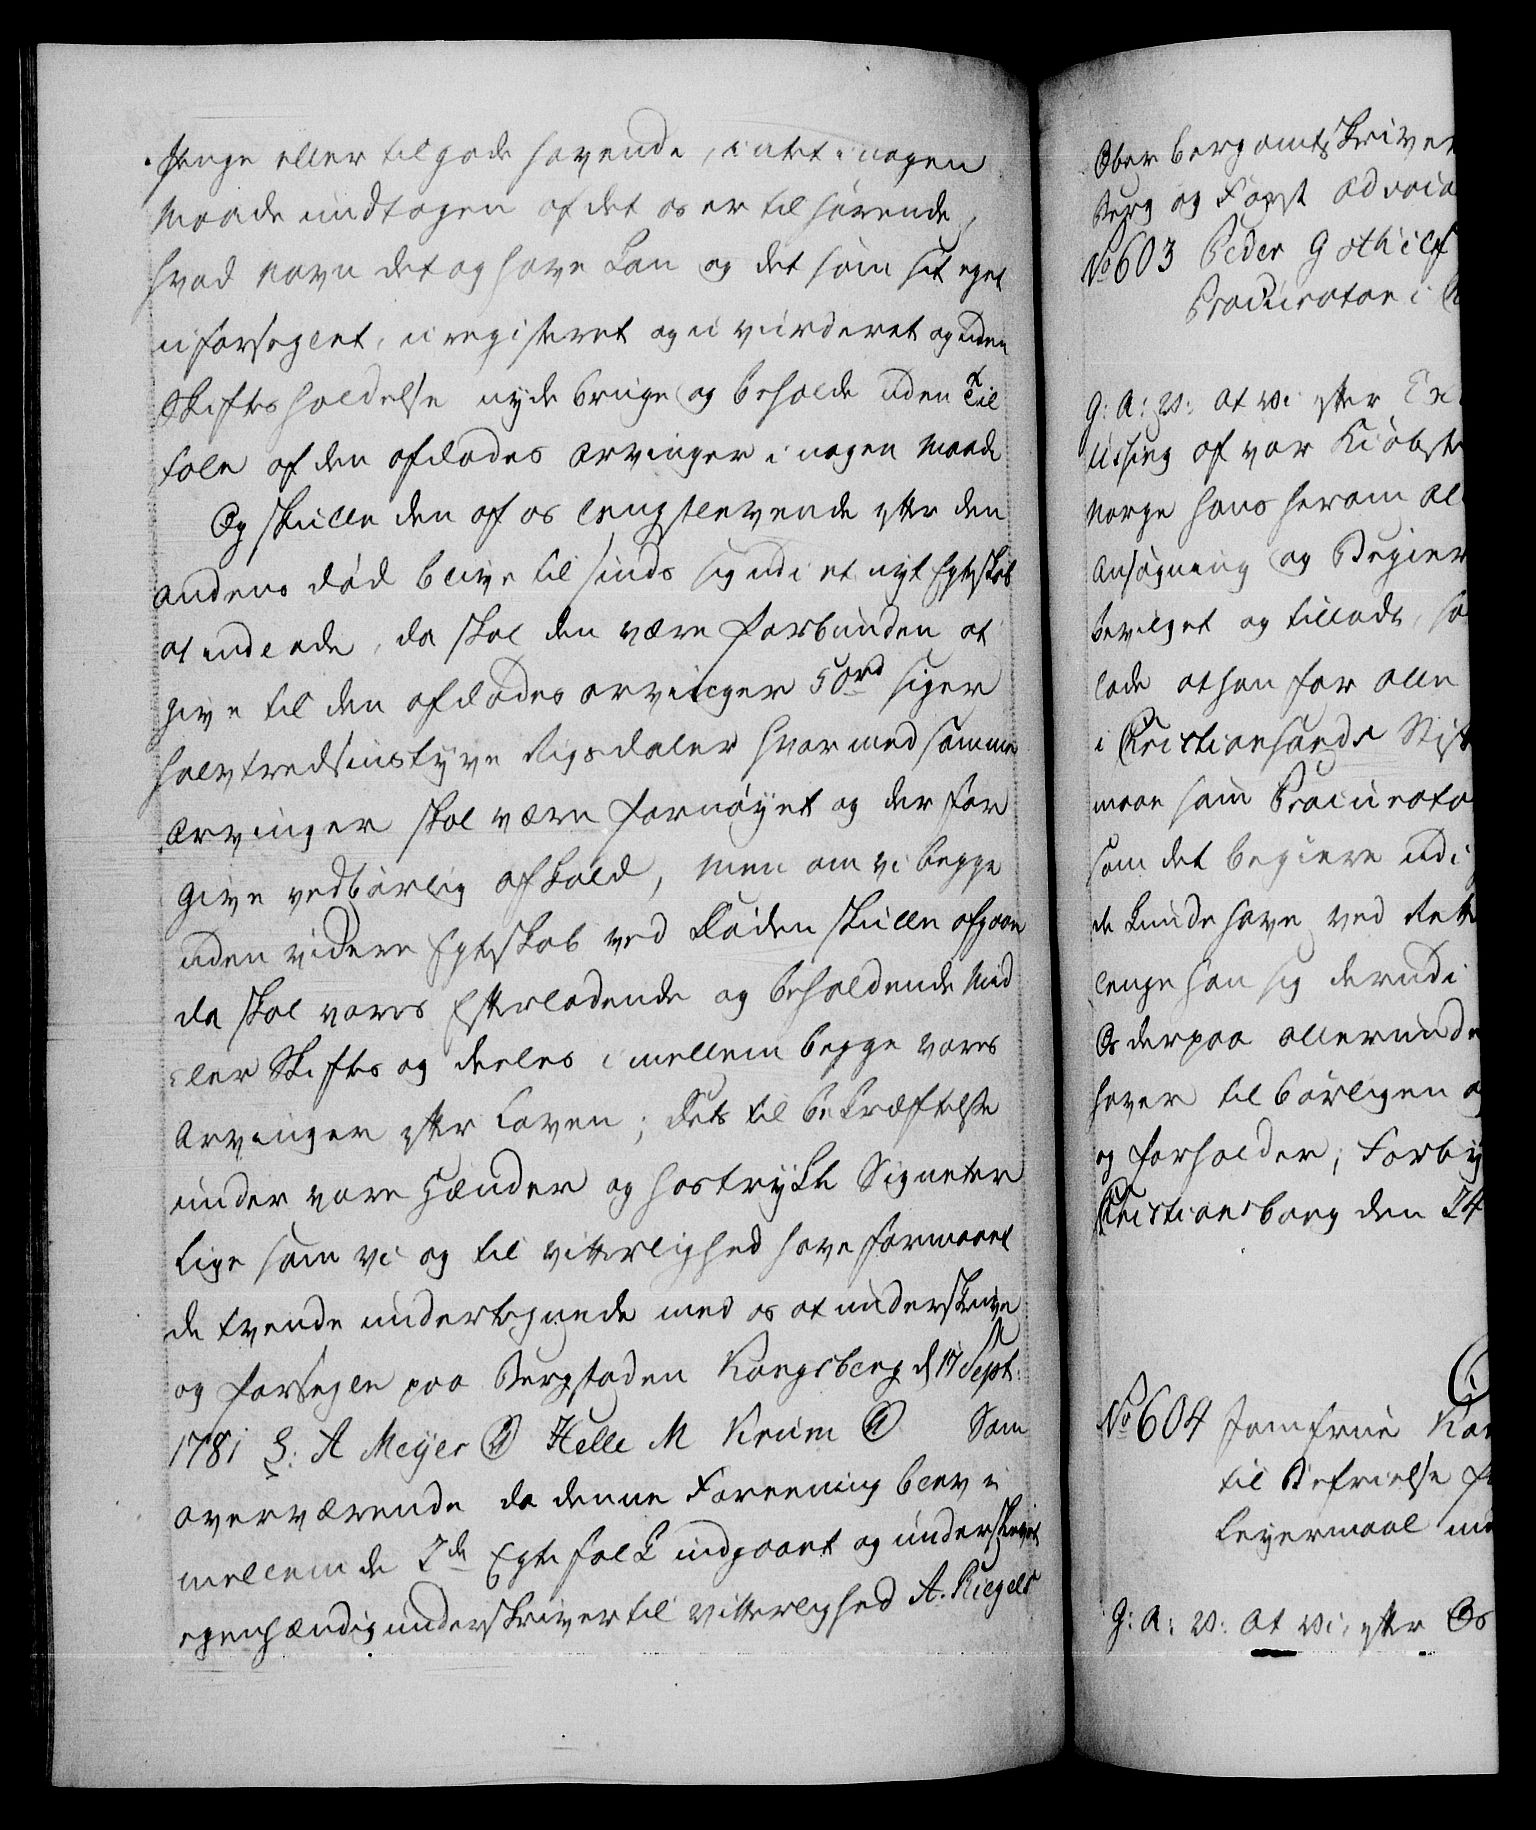 penge eller tilgode havende, intet i nogen
Maade undtagen af det os er tilhørende,
hvad navn det og have kan og det som sit eget
uforseglet, uregisteret og uvurderet og uden
Skiftes holdelse nyde bruge og beholde uden Til
tale af den afdødes Arvinger i nogen Maade
Og skulle den af os lengstlevende efter den
andens død blive til sinds sig udi et nyt Egteskab
at indlade, da skal den være forbunden at
give til den afdødes arvinger 50 rd siger
halvtredsinstyve Rigsdaler hvormed samme
Arvinger skal være fornøyet og derfor
give vedbørlig afkald, Men om vi begge
uden videre Egteskab ved Døden skulle afgaae
da skal vores Efterladende og beholdende Mid
ler Skiftes og deeles imellem begge vores
Arvinger efter Loven; Dets til bekræftelse
under vore Hænder og hostrykte Signeter
lige som vi og til vitterlighed have formaaet
de tvende undertegnede med os at underskrive
og forsegle paa Bergstaden Kongsberg d 17 Sept:
1781 L: A Meyer Helle M Krum Som
overværende da denne Foreening blev i
mellem de 2de Egtefolk indgaaet og underskrevet
egenhændig underskriver til vitterlighed A. Riegels
Oberbergamtskriver
Berg og Forst Advoca
No 603 Peder Gothilf
Procurator i
G: A: V: At Vi efter
Ussing af vor Kiøbst
Norge hans herom al
Ansøgning og Begier
bevilget og tilladt, sa
lade at han for alle
i Christiansands Stift
maae som Procurato
som det begiere udi
de kunde have ved Rett
lenge han sig derudi
Os derpaa allerunde
haver tilbørligen
og forholder; Forby
Christiansborg den 24
No 604 Jomfrue Kar
til Befrielse f
Leyermaal me
G: A: V: At Vi, efter Os